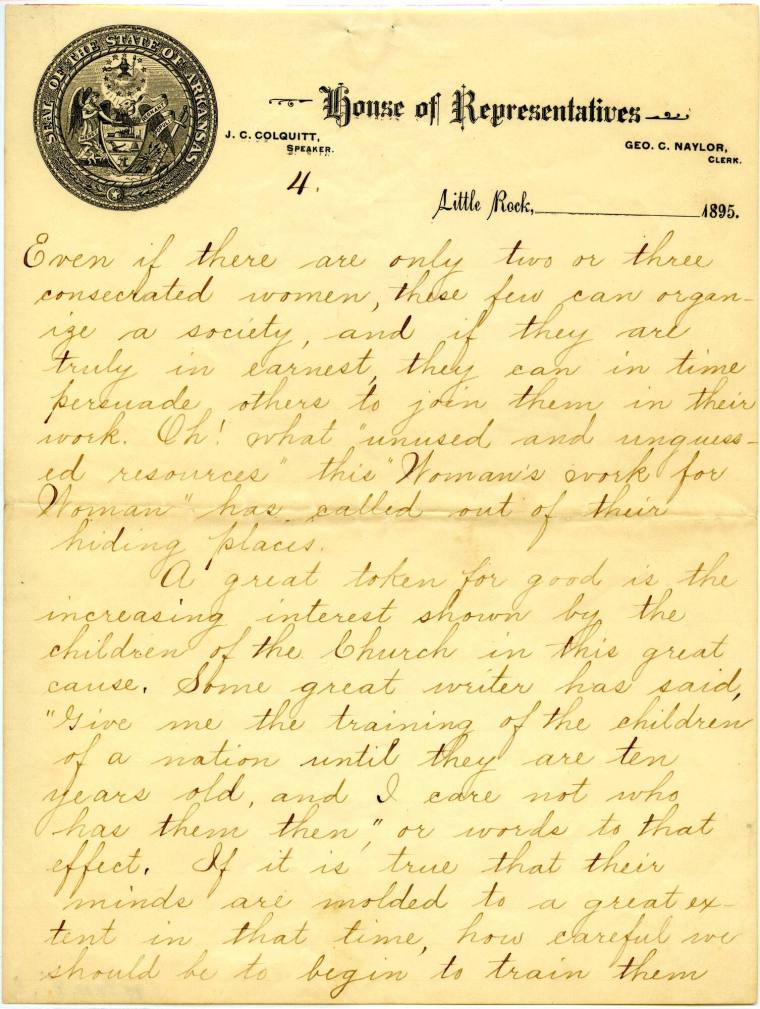 SEAL OF THE STATE OF ARKANSAS
House of Representatives
J. C. COLQUITT,
SPEAKER.
GEO. C. NAYLOR,
CLERK.
4.
Little Rock, 1895.
Even if there are only two or three
consecrated women, these few can organ-
ize a society, and if they are
truly in earnest, they can in time
persuade others to join them in their
work. Oh! what "unused and unguess-
ed resources" this "Woman's work for
Woman" has called out of their
hiding places.
A great token for good is the
increasing interest shown by the
children of the Church in this great
cause. Some great writer has said,
"Give me the training of the children
of a nation until they are ten
years old, and I care not who
has them then," or words to that
effect. If it is true that their
minds are molded to a great ex-
tent in that time, how careful we
should be to begin to train them